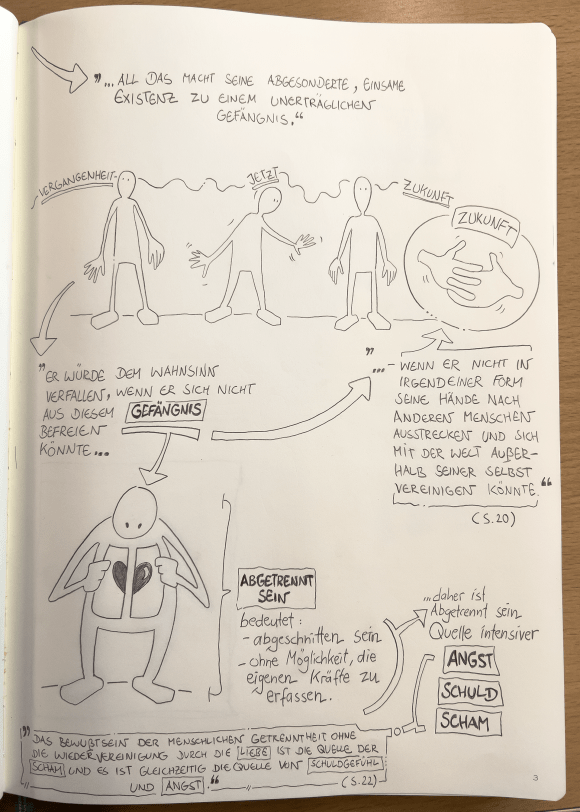 "... ALL DAS MACHT SEINE ABGESONDERTE, EINSAME
EXISTENZ ZU EINEM UNERTRÄGLICHEN
GEFÄNGNIS."
VERGANGENHEIT
JETZT
ZUKUNFT
ZUKUNFT
"ER WÜRDE DEM WAHNSINN
VERFALLEN, WENN ER SICH NICHT
AUS DIESEM GEFÄNGNIS
BEFREIEN
KÖNNTE...
"
...- WENN ER NICHT IN
IRGENDEINER FORM
SEINE HÄNDE NACH
ANDEREN MENSCHEN
AUSSTRECKEN UND SICH
MIT DER WELT AUßER-
HALB SEINER SELBST
VEREINIGEN KÖNNTE."
(S.20)
ABGETRENNT
SEIN
bedeutet:
- abgeschnitten sein
- ohne Möglichkeit, die
eigenen Kräfte zu
erfassen.
...daher ist
Abgetrennt sein
Quelle intensiver
ANGST
SCHULD
SCHAM
"DAS BEWUßTSEIN DER MENSCHLICHEN GETRENNTHEIT OHNE
DIE WIEDERVEREINIGUNG DURCH DIE LIEBE IST DIE QUELLE DER
SCHAM UND ES IST GLEICHZEITIG DIE QUELLE VON SCHULDGEFÜHL
UND ANGST."
(S.22)
3